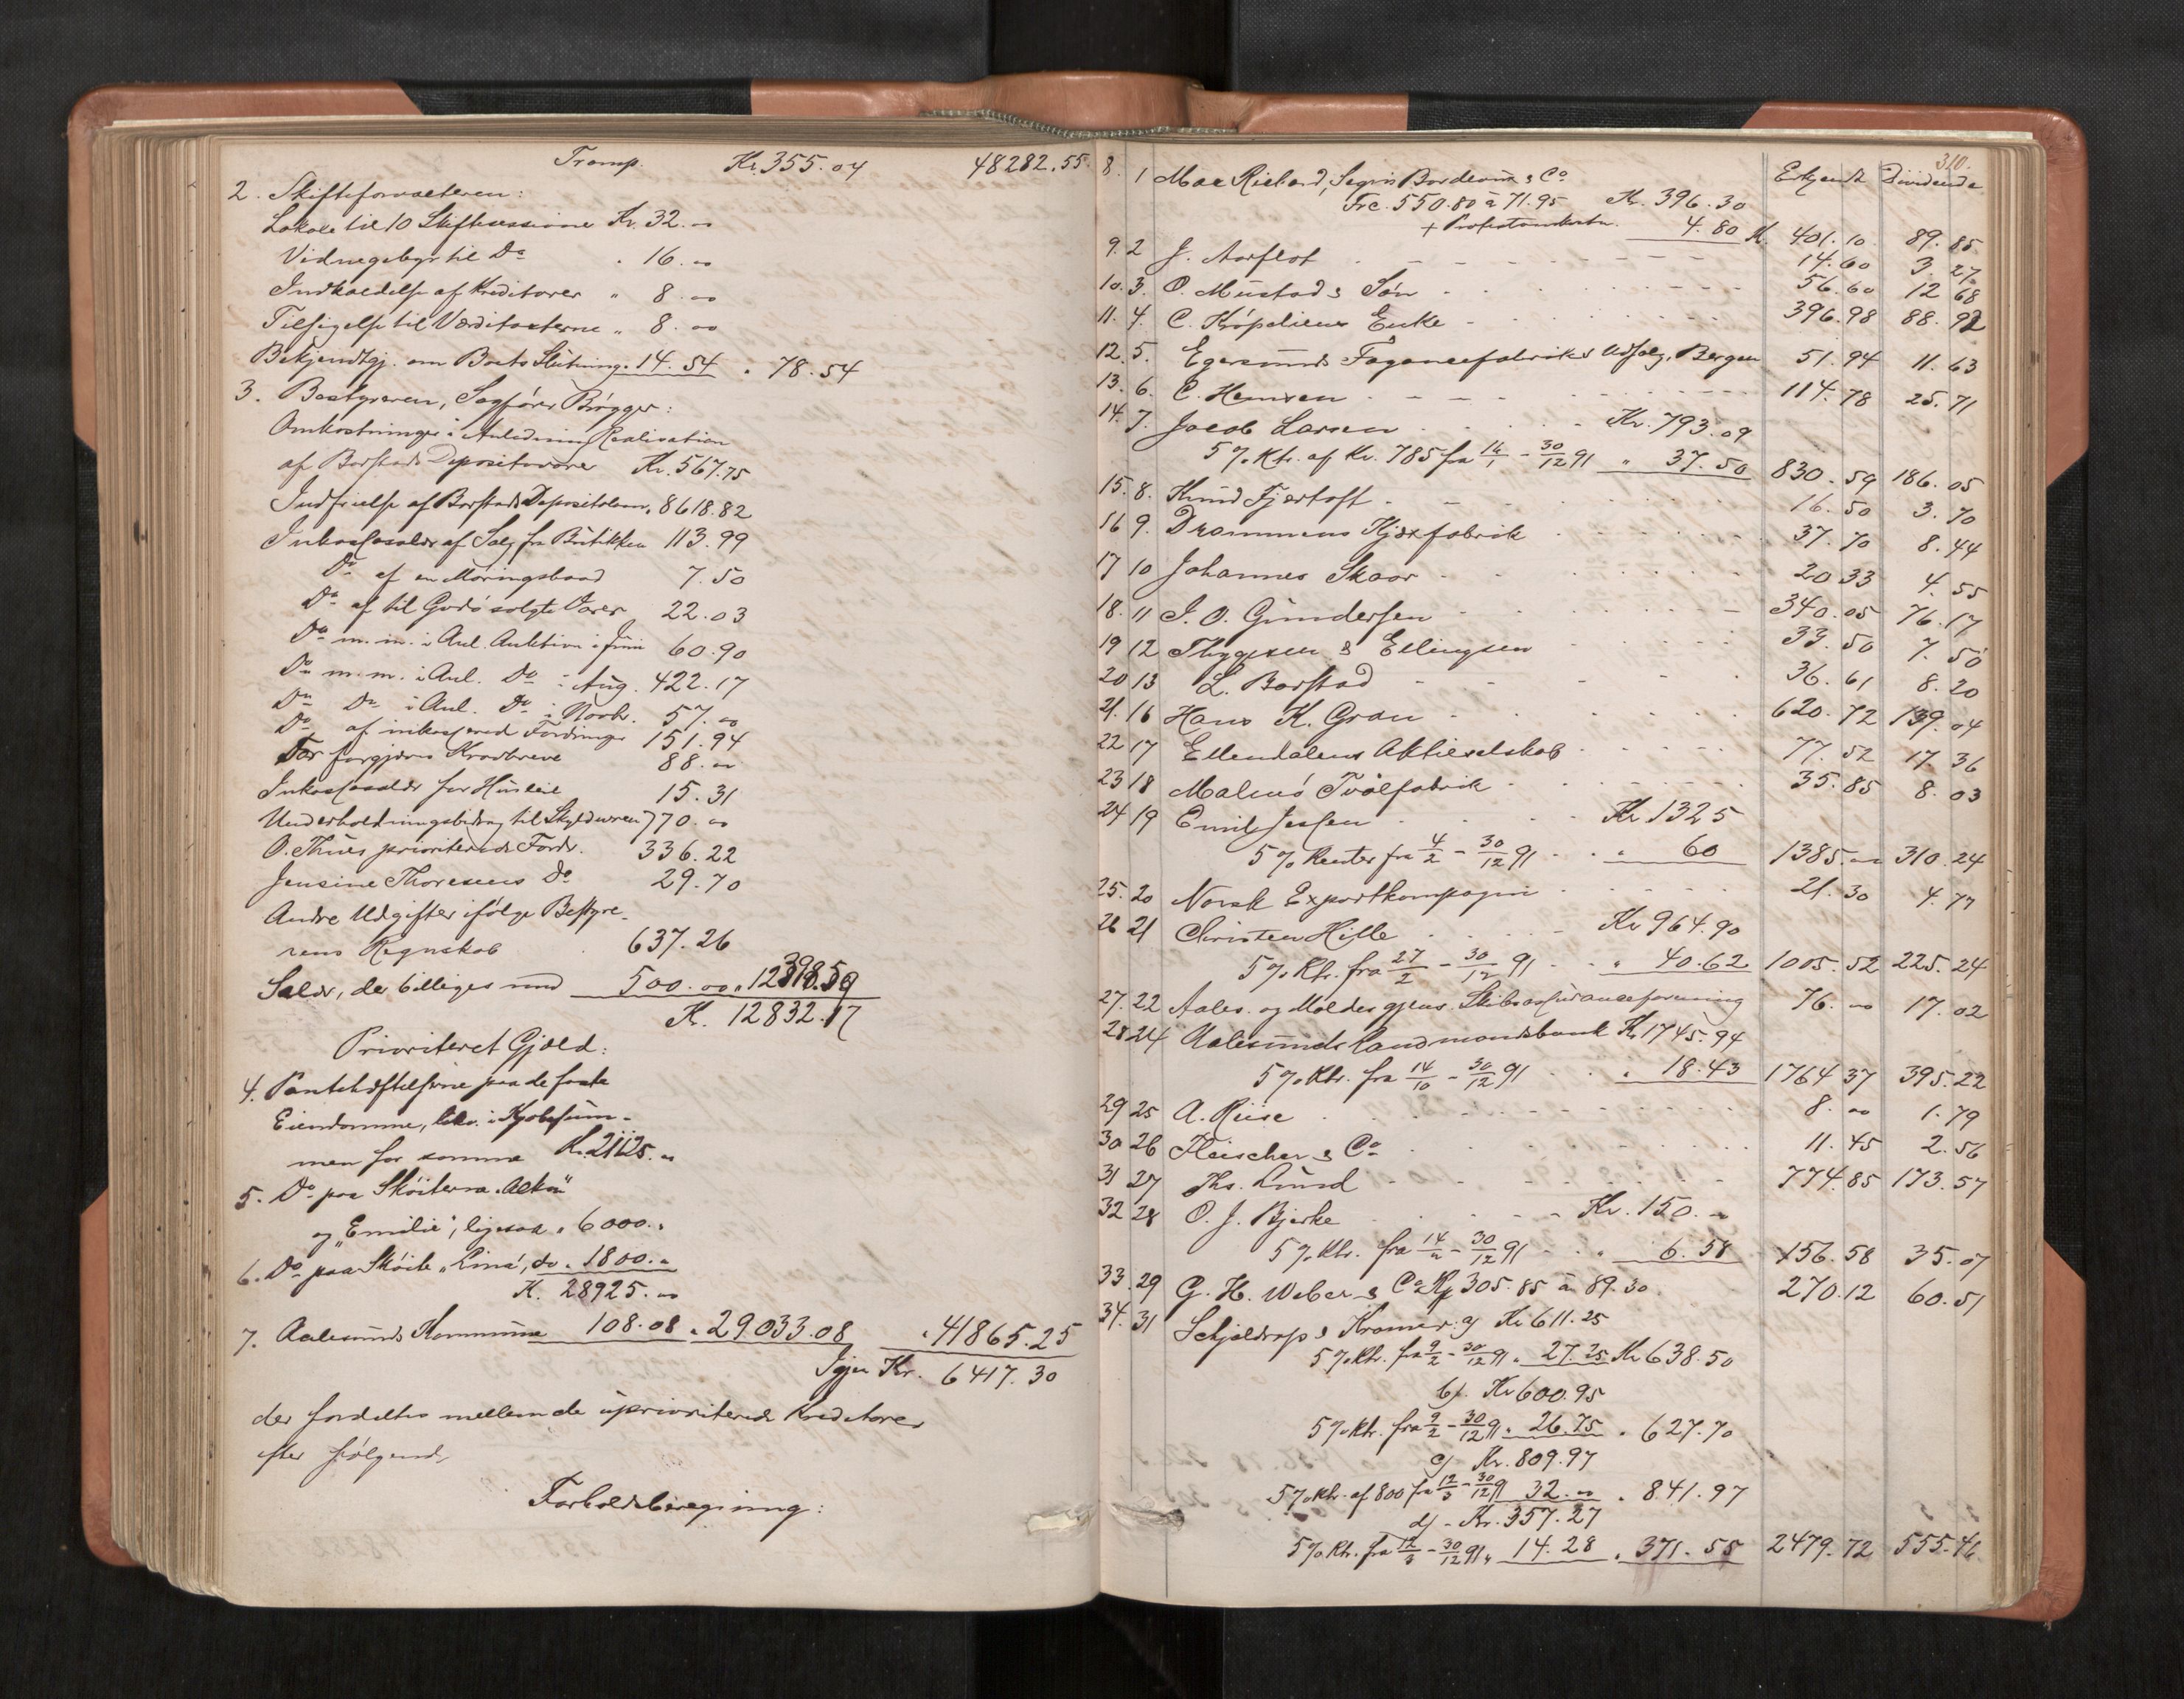 Transp. Kr. 355.04 48282.55.
2. Skifteforvalteren:
Lokale til 10 Skiftesessioner Kr. 32. "
Vidnegebyr til Do " 16. "
Indkaldelse af Kreditorer " 8. "
Tilsigelse til Værditaxterne " 8. "
Bekjendtgj. om Boets Slutning " 14.54 " 78.54
3. Bestyreren, Sagfører Brøgger:
Omkostninger i Anledning Realisation
af Borstads Depositovarer Kr. 567.75
Indfrielse af Borstads Depositolaan " 8618.82
Inkassosalær af Salg fra Butikken 113.99
Do af en Møringsbaad 7.50
Do af til Godø solgte Varer 22.03
Do m.m. i Anl. Auktion i Juni 60.90
Do m.m. i Anl. Do i Aug. 422.17
Do Do i Anl. Do i Novbr. 57. "
Do af inkasserede Fordringer 151.94
For forgjæves Kravbreve 88. "
Inkassosalær for Husleie 15.31
Underholdningsbidrag til Skyldneren 770. "
O. Thues prioriterede Fordr. 336.22
Jensine Thoresens Do 29.70
Andre Udgifter ifølge Bestyre-
rens Regnskab 637.26
Salær, der billiges med 500.00 " 12398.59
Kr. 12832.17
Prioriteret Gjæld:
4. Pantehæftelserne paa de faste
Eiendomme, likv. i Kjøbesum-
men for samme Kr. 21125. "
5. Do paa Skøiterne "Alka"
og "Emilie", ligesaa " 6000. "
6. Do paa Skøite "Lina", do " 1800. "
K. 28925. "
7. Aalesunds Kommune 108.08 " 29033.08 " 41865.25
Igjen Kr. 6417.30
der fordeltes mellem de uprioriterede Kreditorer
efter følgende
Forholdsberegning:
310.
Erkjendt Dividende
8. 1 Max Richard, Segin Bordeaux & Co
Frc. 550.80 à 71.95 Kr. 396.30
+ Protestomkostn. 4.80 K. 401.10 89.85
9. 2 J. Aarflot 14.60 3.27
10. 3. O. Mustad & Søn 56.60 12.68
11. 4. C. Køpdiens Enke 396.98 88.92
12. 5. Egersunds Fayancefabriks Udsalg, Bergen 51.94 11.63
13. 6. C. Hansen 114.78 25.71
14. 7. Jacob Larsen Kr. 793.09
5 % Rtr. af Kr. 785 fra 16/1 - 30/12 91 " 37.50 830.59 186.05
15. 8. Knud Fjertoft 16.50 3.70
16 9. Drammens Kjæxfabrik 37.70 8.44
17 10 Johannes Skaar 20.33 4.55
18. 11 I. O. Gundersen 340.05 76.17
19 12 Thygesen & Ellingsen 33.50 7.50
20 13 L. Borstad 36.61 8.20
21. 16 Hans K. Gran 620.72 139.04
22 17 Ellendalens Aktieselskab 77.52 17.36
23 18 Malmø Tvålfabrik 35.85 8.03
24 19 Emil Jessen Kr 1325
5 % Renter fra 4/2 - 30/12 91 " 60 1385. " 310.24
25. 20 Norsk Exportkompagni 21.30 4.77
26 21 Christen Hille Kr 964.90
5 % Rtr. fra 27/2 - 30/12 91 " 40.62 1005.52 225.24
27. 22 Aales. og Moldes gjens. Skibsassuranceforening 76. " 17.02
28 24 Aalesunds Landmandsbank Kr 1745.94
5 % Rtr. fra 14/10 - 30/12 91 " 18.43 1764.37 395.22
29 25 A. Riise 8. " 1.79
30 26 Fleischer & Co 11.45 2.56
31 27 Ths. Lund 774.85 173.57
32 28 O. J. Bjerke Kr. 150. "
5 % Rtr. fra 14/2 - 30/12 91 " 6.58 156.58 35.07
33. 29 G. H. Weber & Co 305.85 à 89.30 270.12 60.51
34. 31 Schjeldrop & Kramer: a) Kr 611.25
5 % Rtr. fra 9/2 - 30/12 91 " 27.25 Kr 638.50
b). Kr 600.95
5 % Rtr. fra 9/2 - 30/12 91 " 26.75 " 627.70
c) Kr. 809.97
5 % Rtr. af 800 fra 12/3 - 30/12 91 32. " " 841.97
d) - Kr. 357.27
5 % Rtr. fra 12/3 - 30/12 91 " 14.28 " 371.55 2479.72 555.46